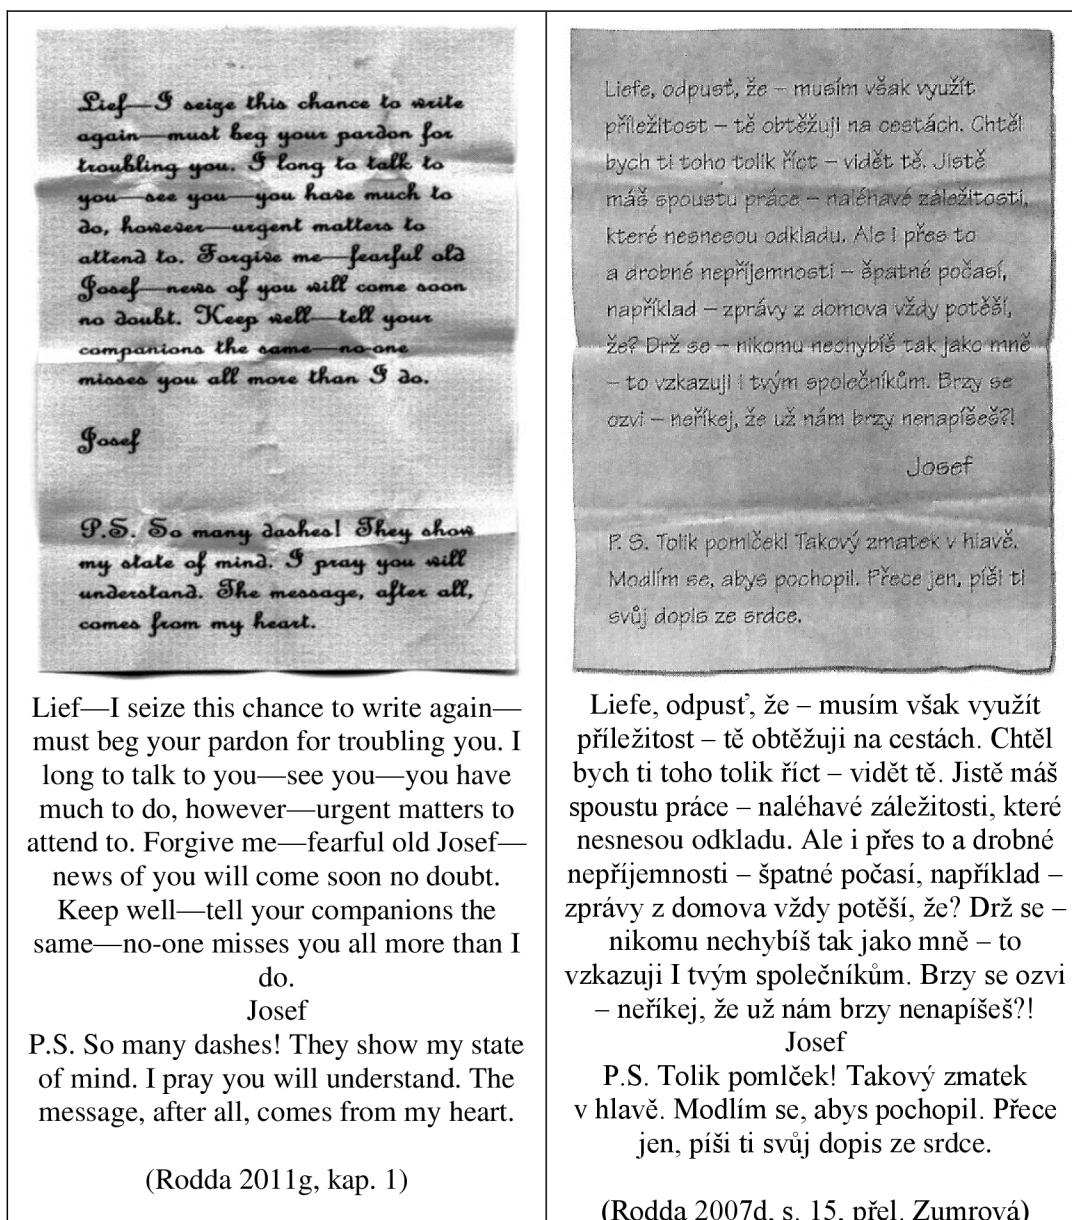 Lief—I seize this chance to write
again—must beg your pardon for
troubling you. I long to talk to
you—see you—you have much to
do, however—urgent matters to
attend to. Forgive me—fearful old
Josef—news of you will come soon
no doubt. Keep well—tell your
companions the same—no-one
misses you all more than I do.
Josef
P.S. So many dashes! They show
my state of mind. I pray you will
understand. The message, after all,
comes from my heart.
Lief—I seize this chance to write again—
must beg your pardon for troubling you. I
long to talk to you—see you—you have
much to do, however—urgent matters to
attend to. Forgive me—fearful old Josef—
news of you will come soon no doubt.
Keep well—tell your companions the
same—no-one misses you all more than I
do.
Josef
P.S. So many dashes! They show my state
of mind. I pray you will understand. The
message, after all, comes from my heart.
(Rodda 2011g, kap. 1)
Liefe, odpusť, že – musím však využít
příležitost – tě obtěžuji na cestách. Chtěl
bych ti toho tolik říct – vidět tě. Jistě
máš spoustu práce – naléhavé záležitosti,
které nesnesou odkladu. Ale i přes to
a drobné nepříjemnosti – špatné počasí,
například – zprávy z domova vždy potěší,
že? Drž se – nikomu nechybíš tak jako mně
– to vzkazuji i tvým společníkům. Brzy se
ozvi – neříkej, že už nám brzy nenapíšeš?!
Josef
P. S. Tolik pomlček! Takový zmatek v hlavě.
Modlím se, abys pochopil. Přece jen, píši ti
svůj dopis ze srdce.
Liefe, odpusť, že – musím však využít
příležitost – tě obtěžuji na cestách. Chtěl
bych ti toho tolik říct – vidět tě. Jistě máš
spoustu práce – naléhavé záležitosti, které
nesnesou odkladu. Ale i přes to a drobné
nepříjemnosti – špatné počasí, například –
zprávy z domova vždy potěší, že? Drž se –
nikomu nechybíš tak jako mně – to
vzkazuji I tvým společníkům. Brzy se ozvi
– neříkej, že už nám brzy nenapíšeš?!
Josef
P.S. Tolik pomlček! Takový zmatek
v hlavě. Modlím se, abys pochopil. Přece
jen, píši ti svůj dopis ze srdce.
(Rodda 2007d, s. 15, přel. Zumrová)